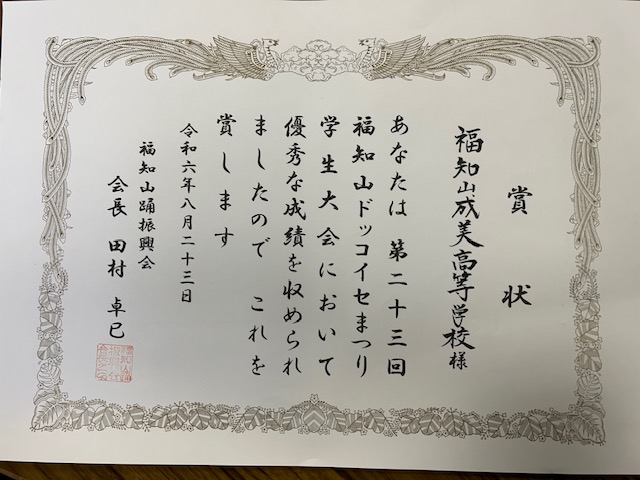 賞状
福知山成美高等学校様
あなたは 第二十三回
福知山ドッコイセまつり
学生大会において
優秀な成績を収められ
ましたので これを
賞します
令和六年八月二十三日
福知山踊振興会
会長 田村 卓巳